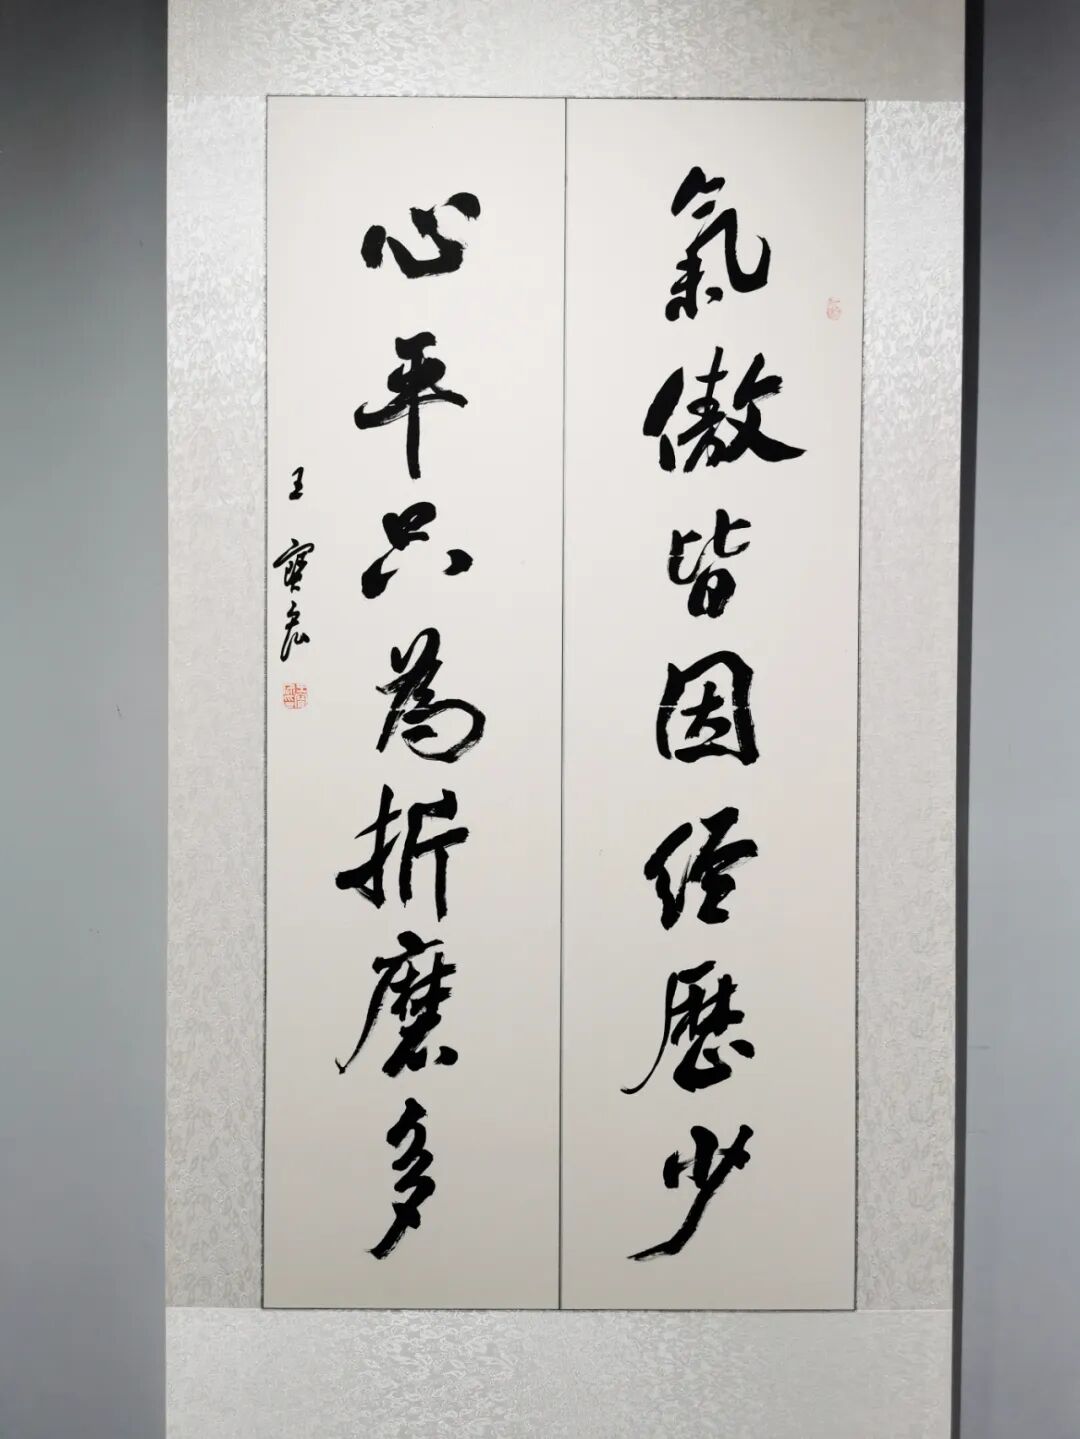 氣傲皆因經歷少
心平只為折磨多
王寶